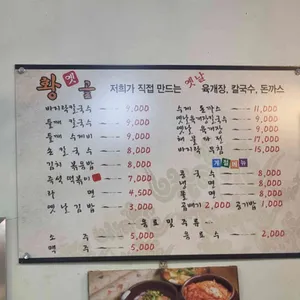 황 옛 골 저희가 직접 만드는 옛날 육개장, 칼국수, 돈까스
바지락칼국수 9,000
들깨 칼국수 9,000
들깨 수제비 9,000
손 칼국수 8,000
김치 볶음밥 8,000
즉석 떡볶이 7,000
라 면 4,500
옛날 김밥 3,000
소 주 5,000
맥 주 5,000
수제 돈까스 11,000
옛날육개장칼국수 9,000
옛날 육개장 9,000
해물파전 17,000
바지락 무침 15,000
계절메뉴
콩국수 8,000
냉 면 8,000
쫄 면 8,000
곱빼기 2,000 공기밥 1,000
음료 및 주류
음료수 2,000